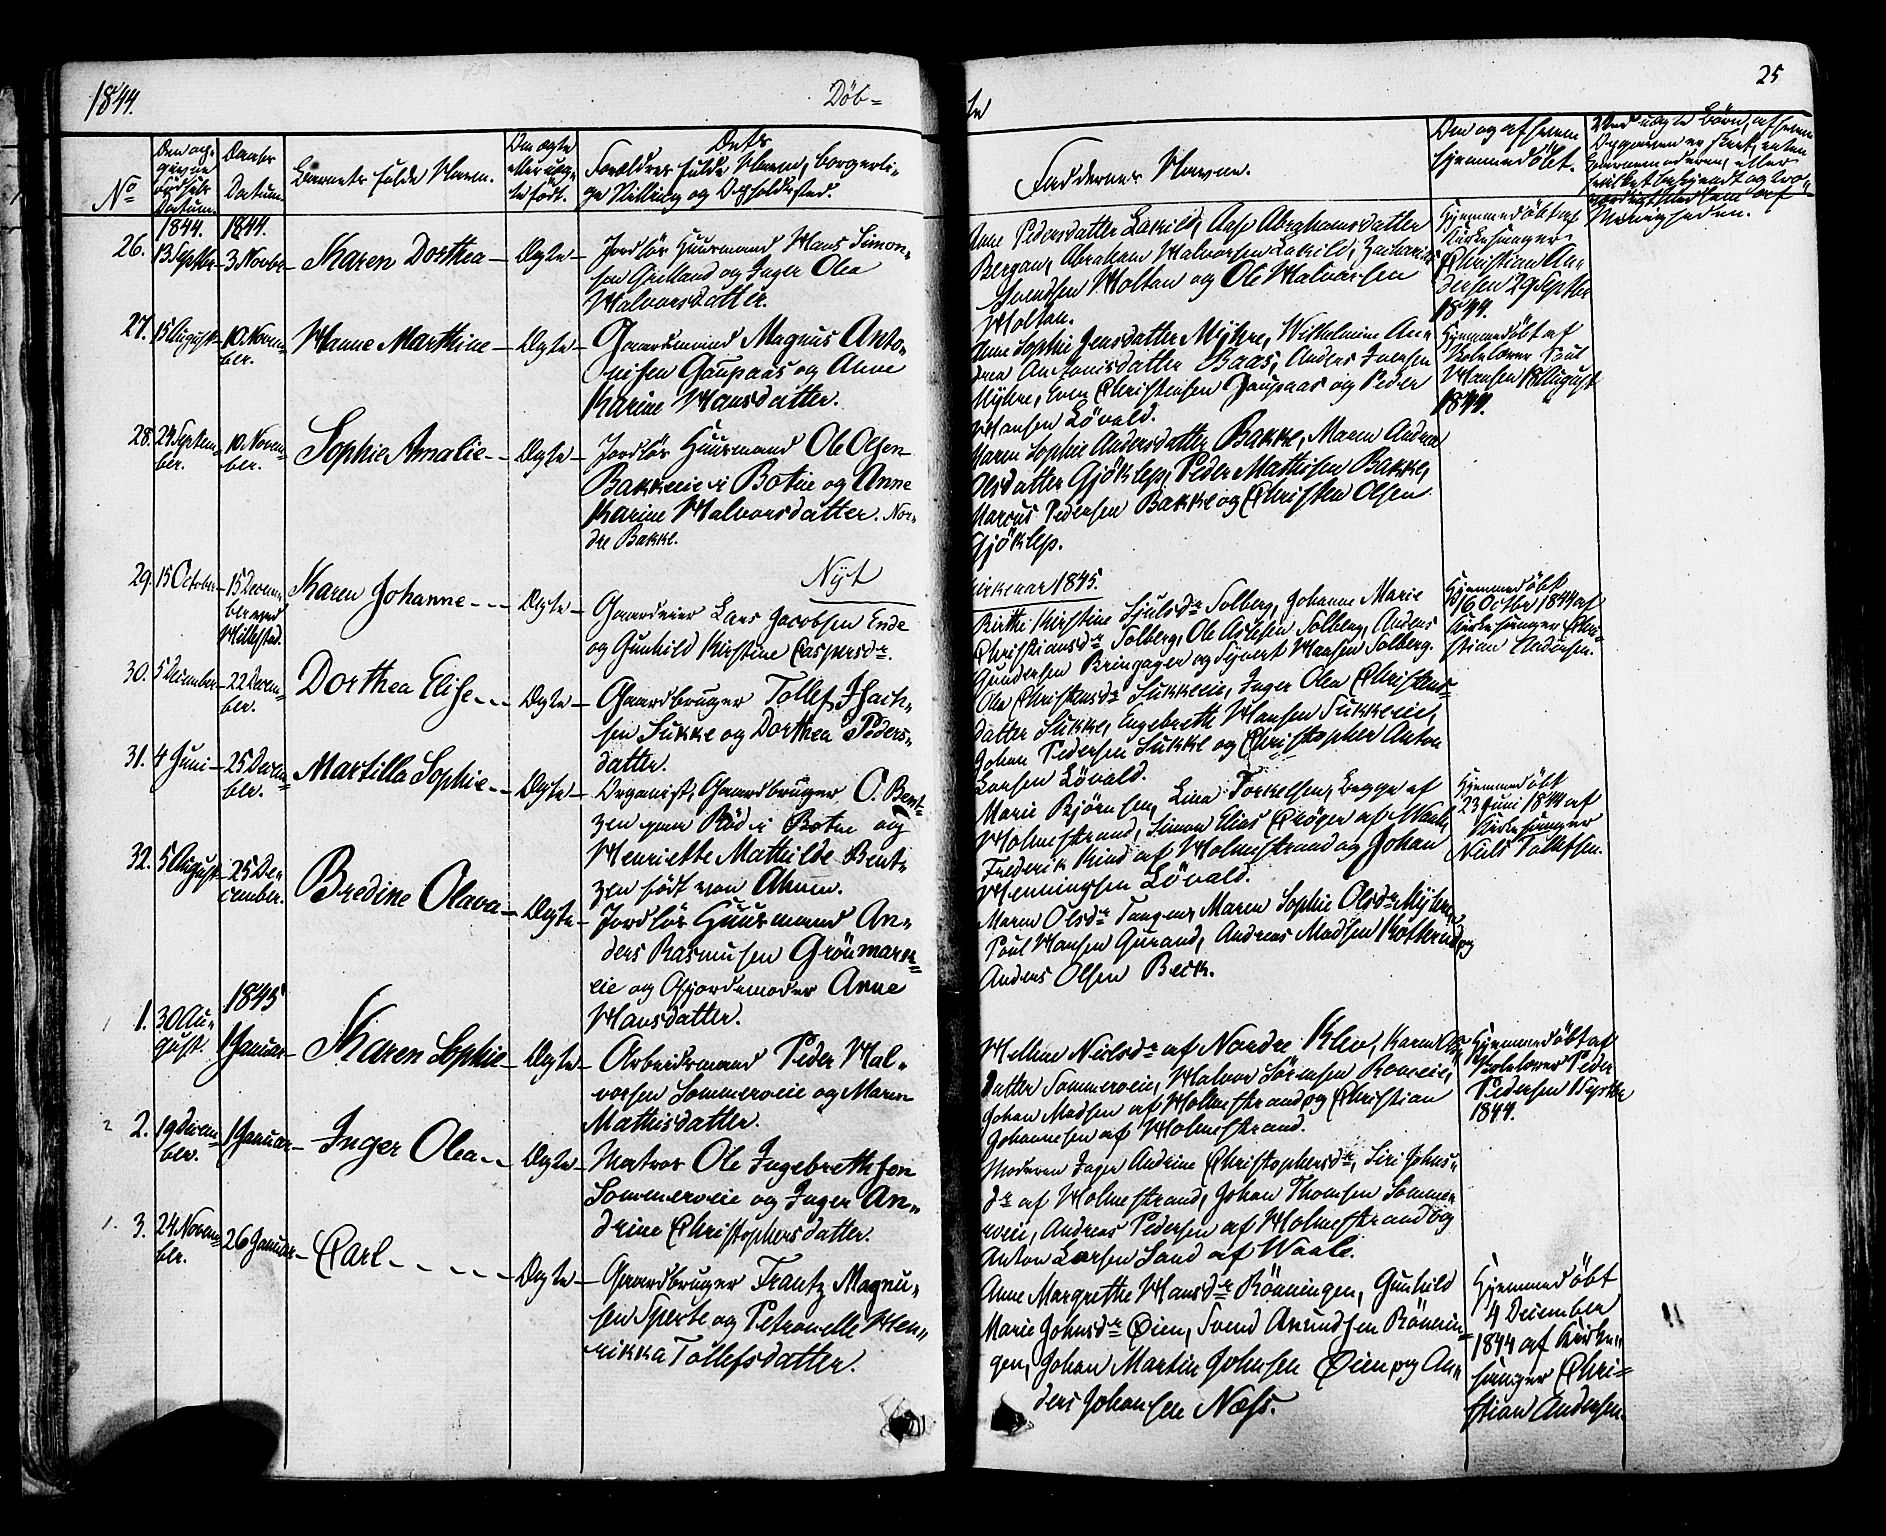 1844.
Döb=
te
25
No
Den op-
givne
Fødsels
Datum.
Daabs
Datum.
Barnets fulde Navn.
Om ægte
eller uæg-
te født.
Dets
Forældres fulde Navn, borgerli-
ge Stilling og Opholdssted.
Faddernes Navne.
Om og af hvem
hjemmedöbt.
1844.
1844.
26.
13 Septbr
3 Novbr
Karen Dorthea
Ægte
Jordlös Huusmand Hans Simon-
sen og Inger Olea
Halvorsdatter.
Anne Pedersdatter Aase Abrahamsdatter
Bergan, Abraham Halvorsen Zacharias
Svendsen Holtan og Ole Halvorsen
Holtan.
Hjemmedöbt af
Kirkesanger
Christian An-
dersen 29 Septbr
1844.
27.
15 August
10. Novem-
ber.
Hanne Marthine
Ægte
Gaardmand Magnus Anto-
nisen Gaupaas og Anne
Karine Hansdatter.
Anne Sophie Jensdatter Myhre, Wilhelmine An-
drea Antonisdatter Baas, Anders Iversen
Myhre, Even Christensen Gaupaas og Peder
Hansen Lövald.
Hjemmedöbt af
Skolelærer Poul
Hansen August
1844.
28.
24 Septem-
ber.
10. Novem-
ber.
Sophie Amalie
Ægte
Jordlös Huusmand Ole Olsen
Bakkeeie i Botne og Anne
Karine Halvorsdatter. Nor-
dre Bakke.
Maren Sophie Andersdatter Bakke, Maren Andrea
Olsdatter Gjöklep, Peder Mathisen Bakke,
Marcus Pedersen Bakke og Christen Olsen
Gjöklep.
Nyt
Kirkeaar 1845.
29.
15 October
15 Decem-
ber ved
Hillestad.
Karen Johanne
Ægte
Gaardeier Lars Jacobsen Ende
og Gunhild Kirstine Caspersdr.
Birthe Kirstine Solberg, Johanne Marie
Christiansdr Solberg, Ole Solberg, Anders
Gundersen Bringager og Syvert Hansen Solberg.
Hjemmedöbt
16 Octbr 1844 af
Kirkesanger Chri-
stian Andersen.
30.
5 December
22 Decem-
ber.
Dorthea Elise
Ægte
Gaardbruger Tollef Isach-
sen Sukke og Dorthea Peders-
datter.
Olea Christensdr Sukkeeie, Inger Olea Christens-
datter Sukke, Engebreth Hansen Sukkeeie,
Johan Pedersen Sukke og Christopher Anton
Larsen Lövald.
31.
4 Juni
25 Decem-
ber.
Martilla Sophie
Ægte
Organist, Gaardbruger O. Bent-
zen paa Röd i Botne og
Henriette Mathilde Bent-
zen født von Ahnen.
Marie Bjørnsen, Lina Torkelsen, begge af
Holmestrand, Simon Elias Cröger af
Frederik Kind af Holmestrand og Johan
Henningsen Lövald.
Hjemmedöbt
23 Juni 1844 af
Kirkesanger
Niels Tollefsen.
32.
5 August
25 De-
cember.
Bredine Olava
Ægte
Jordlös Huusmand An-
ders Rasmusen Grönmark-
eie og Gjordemoder Anne
Hansdatter.
Maren Olsdr Tangen, Maren Sophie Olsdr Myhre
Poul Hansen Andreas Madsen og
Anders Olsen Beck.
1845
1
1.
30 Au-
gust.
1 Januar
Karen Sophie
Ægte
Arbeidsmand Peder Hal-
vorsen Sommereie og Maren
Mathisdatter.
Helene Nielsdr af Nordre Klev, Karen
datter Sommereie, Halvor Sörensen
Johan Madsen af Holmestrand og Christian
Johannesen af Holmestrand.
Hjemmedöbt af
Skolelærer Peder
Pedersen 1 Septbr
1844.
2
2.
19 Decem-
ber.
1 Januar
Inger Olea
Ægte
Matros Ole Ingebrethsen
Sommereie og Inger An-
drine Christophersdatter.
Moderen Inger Andrine Christophersdr, Siri Johns-
dr af Holmestrand, Johan Thomsen Somme-
reie, Andreas Pedersen af Holmestrand og
Anton Larsen Sand af Waale.
1.
3.
24. Novem-
ber.
26 Januar
Carl
Ægte
Gaardbruger Frantz Magnu-
sen Sperbe og Petronelle Hen-
rikka Tollefsdatter.
Anne Margrethe Hansdr Rönningen, Gunhild
Marie Johnsdr Öien, Svend Amundsen Rönnin-
gen, Johan Martin Johnsen Öien og An-
ders Johansen Næss.
Hjemmedöbt
4 December
1844 af Kirke-
sanger Chri-
stian Andersen.